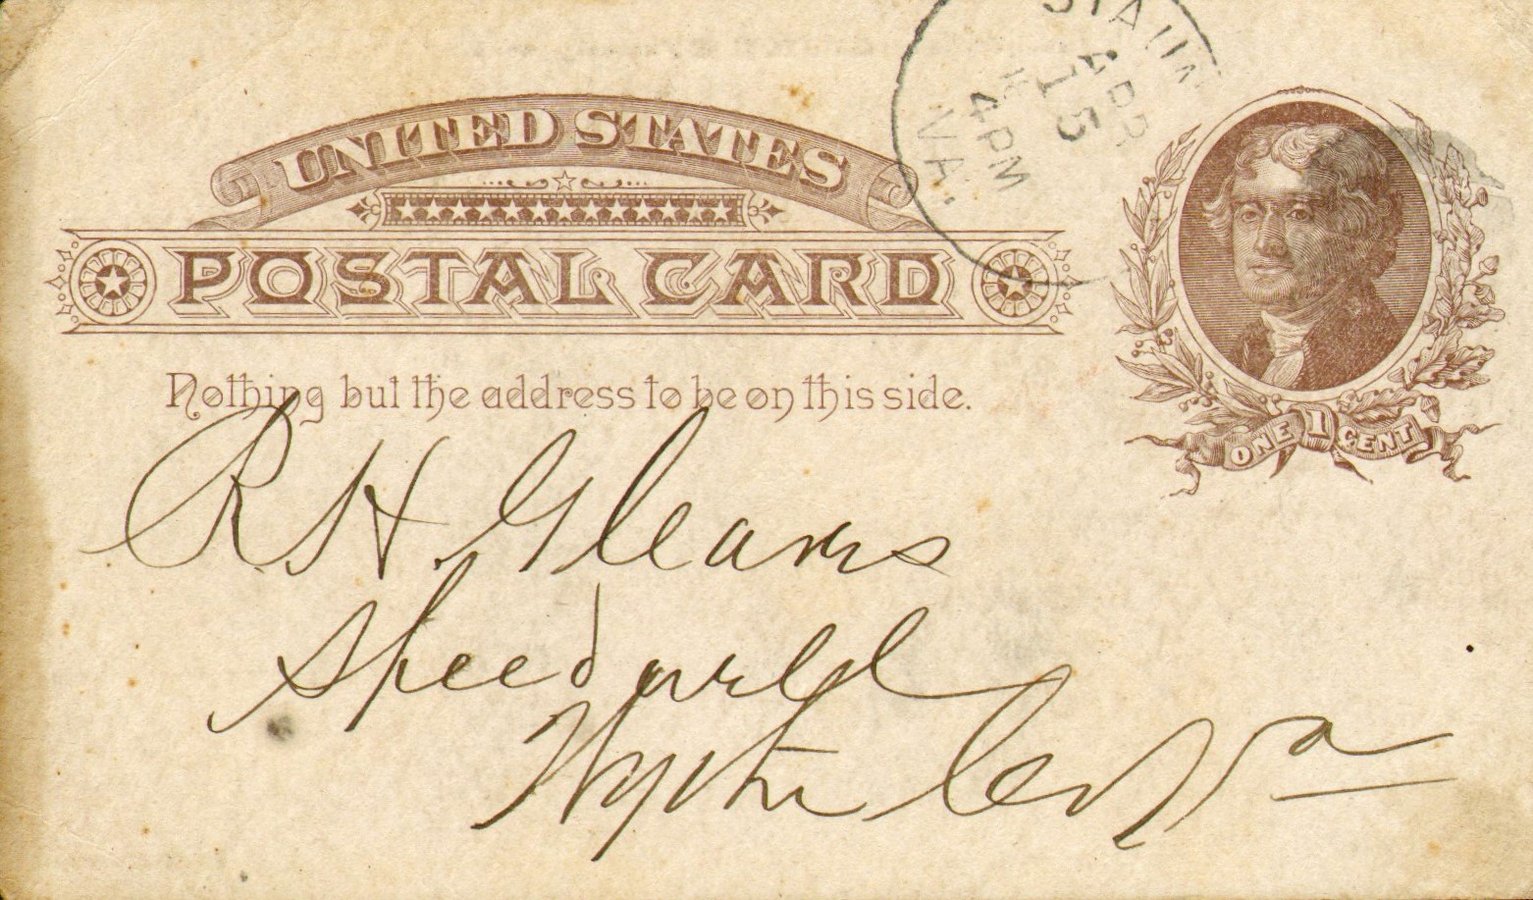 UNITED STATES
POSTAL CARD
Nothing but the address to be on this side.
STAUN
APR
15
4 PM
VA.
ONE 1 CENT
R H Gleaves
Speedwell
Wythe Co Va